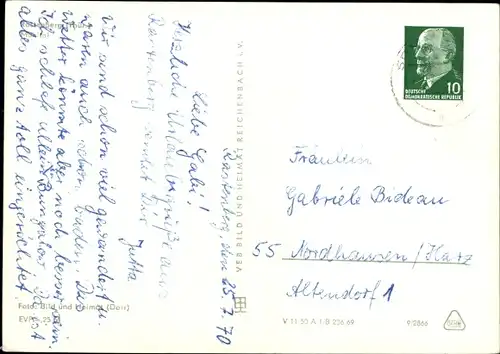 Rastenberg, den 25.7.70
Liebe Gabi!
Herzliche Urlaubsgrüße aus
Rastenberg sendet Dir
Jutta
Wir sind schon viel gewandert u.
waren auch schon baden. Das
Wetter könnte aber noch besser sein.
Ich schlafe allein im Bungalow. Es ist
alles ganz toll eingerichtet.
Foto: Bild und Heimat (Darr)
EVP
VEB BILD UND HEIMAT REICHENBACH i. V.
DEUTSCHE
DEMOKRATISCHE REPUBLIK
10
Fräulein
Gabriele Bideau
55 Nordhausen/Harz
Altendorf 1
V 11 50 A 1/B 226/69
9/2866